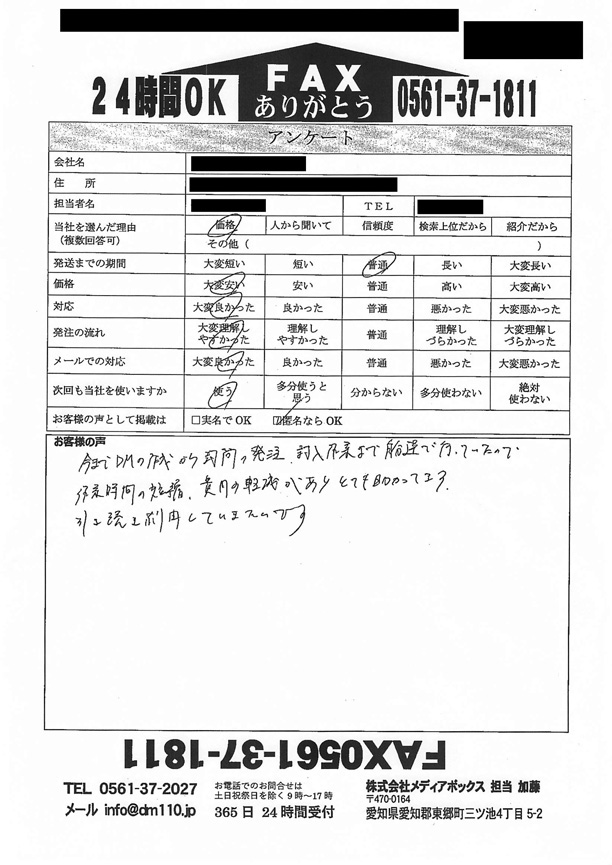 24時間OK
FAX
ありがとう
0561-37-1811
アンケート
会社名
住 所
担当者名 TEL
当社を選んだ理由 価格 人から聞いて 信頼度 検索上位だから 紹介だから
(複数回答可) その他 ( )
発送までの期間 大変短い 短い 普通 長い 大変長い
価格 大変安い 安い 普通 高い 大変高い
対応 大変良かった 良かった 普通 悪かった 大変悪かった
発注の流れ 大変理解しやすかった 理解しやすかった 普通 理解しづらかった 大変理解しづらかった
メールでの対応 大変良かった 良かった 普通 悪かった 大変悪かった
次回も当社を使いますか 使う 多分使うと思う 分からない 多分使わない 絶対使わない
お客様の声として掲載は □実名でOK ☑匿名ならOK
お客様の声
今までDMの作成から封筒の発注、封入作業まで で行っていたので
作業時間の短縮、費用の軽減がありとても助かってます。
引き続き利用していきたいです
FAX0561-37-1811
TEL 0561-37-2027
メール info@dm110.jp
お電話でのお問合せは
土日祝祭日を除く9時～17時
365日 24時間受付
株式会社メディアボックス 担当 加藤
〒470-0164
愛知県愛知郡東郷町三ツ池4丁目5-2